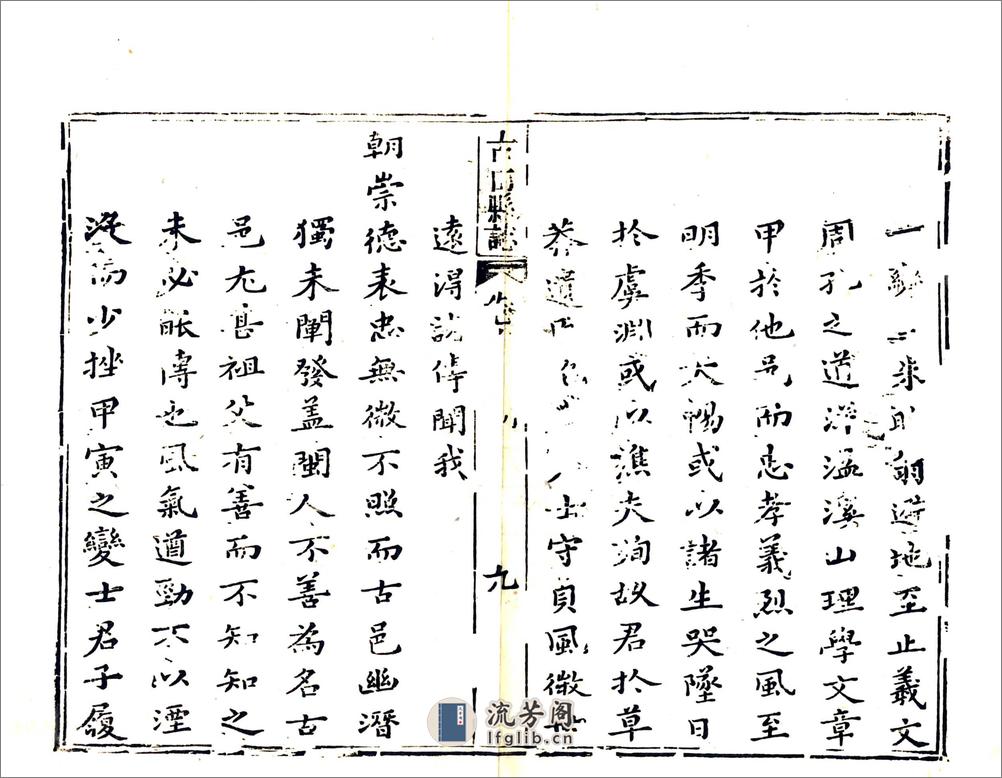 一 避地至止義文
周孔之道洋溢溪山理學文章
甲於他邑而忠孝義烈之風至
明季而大暢或以諸生哭墜日
於虞淵或以漁夫殉故君於草
莽遺 士守貞風微
古田縣誌
九
遠得訛傳聞我
朝崇德表忠無微不照而古邑幽潛
獨未闡發盖閩人不善為名古
邑尤甚祖父有善而不知知之
未必能傳也風氣遒勁不以湮
沒而少挫甲寅之變士君子履
流芳阁
lfglib.cn